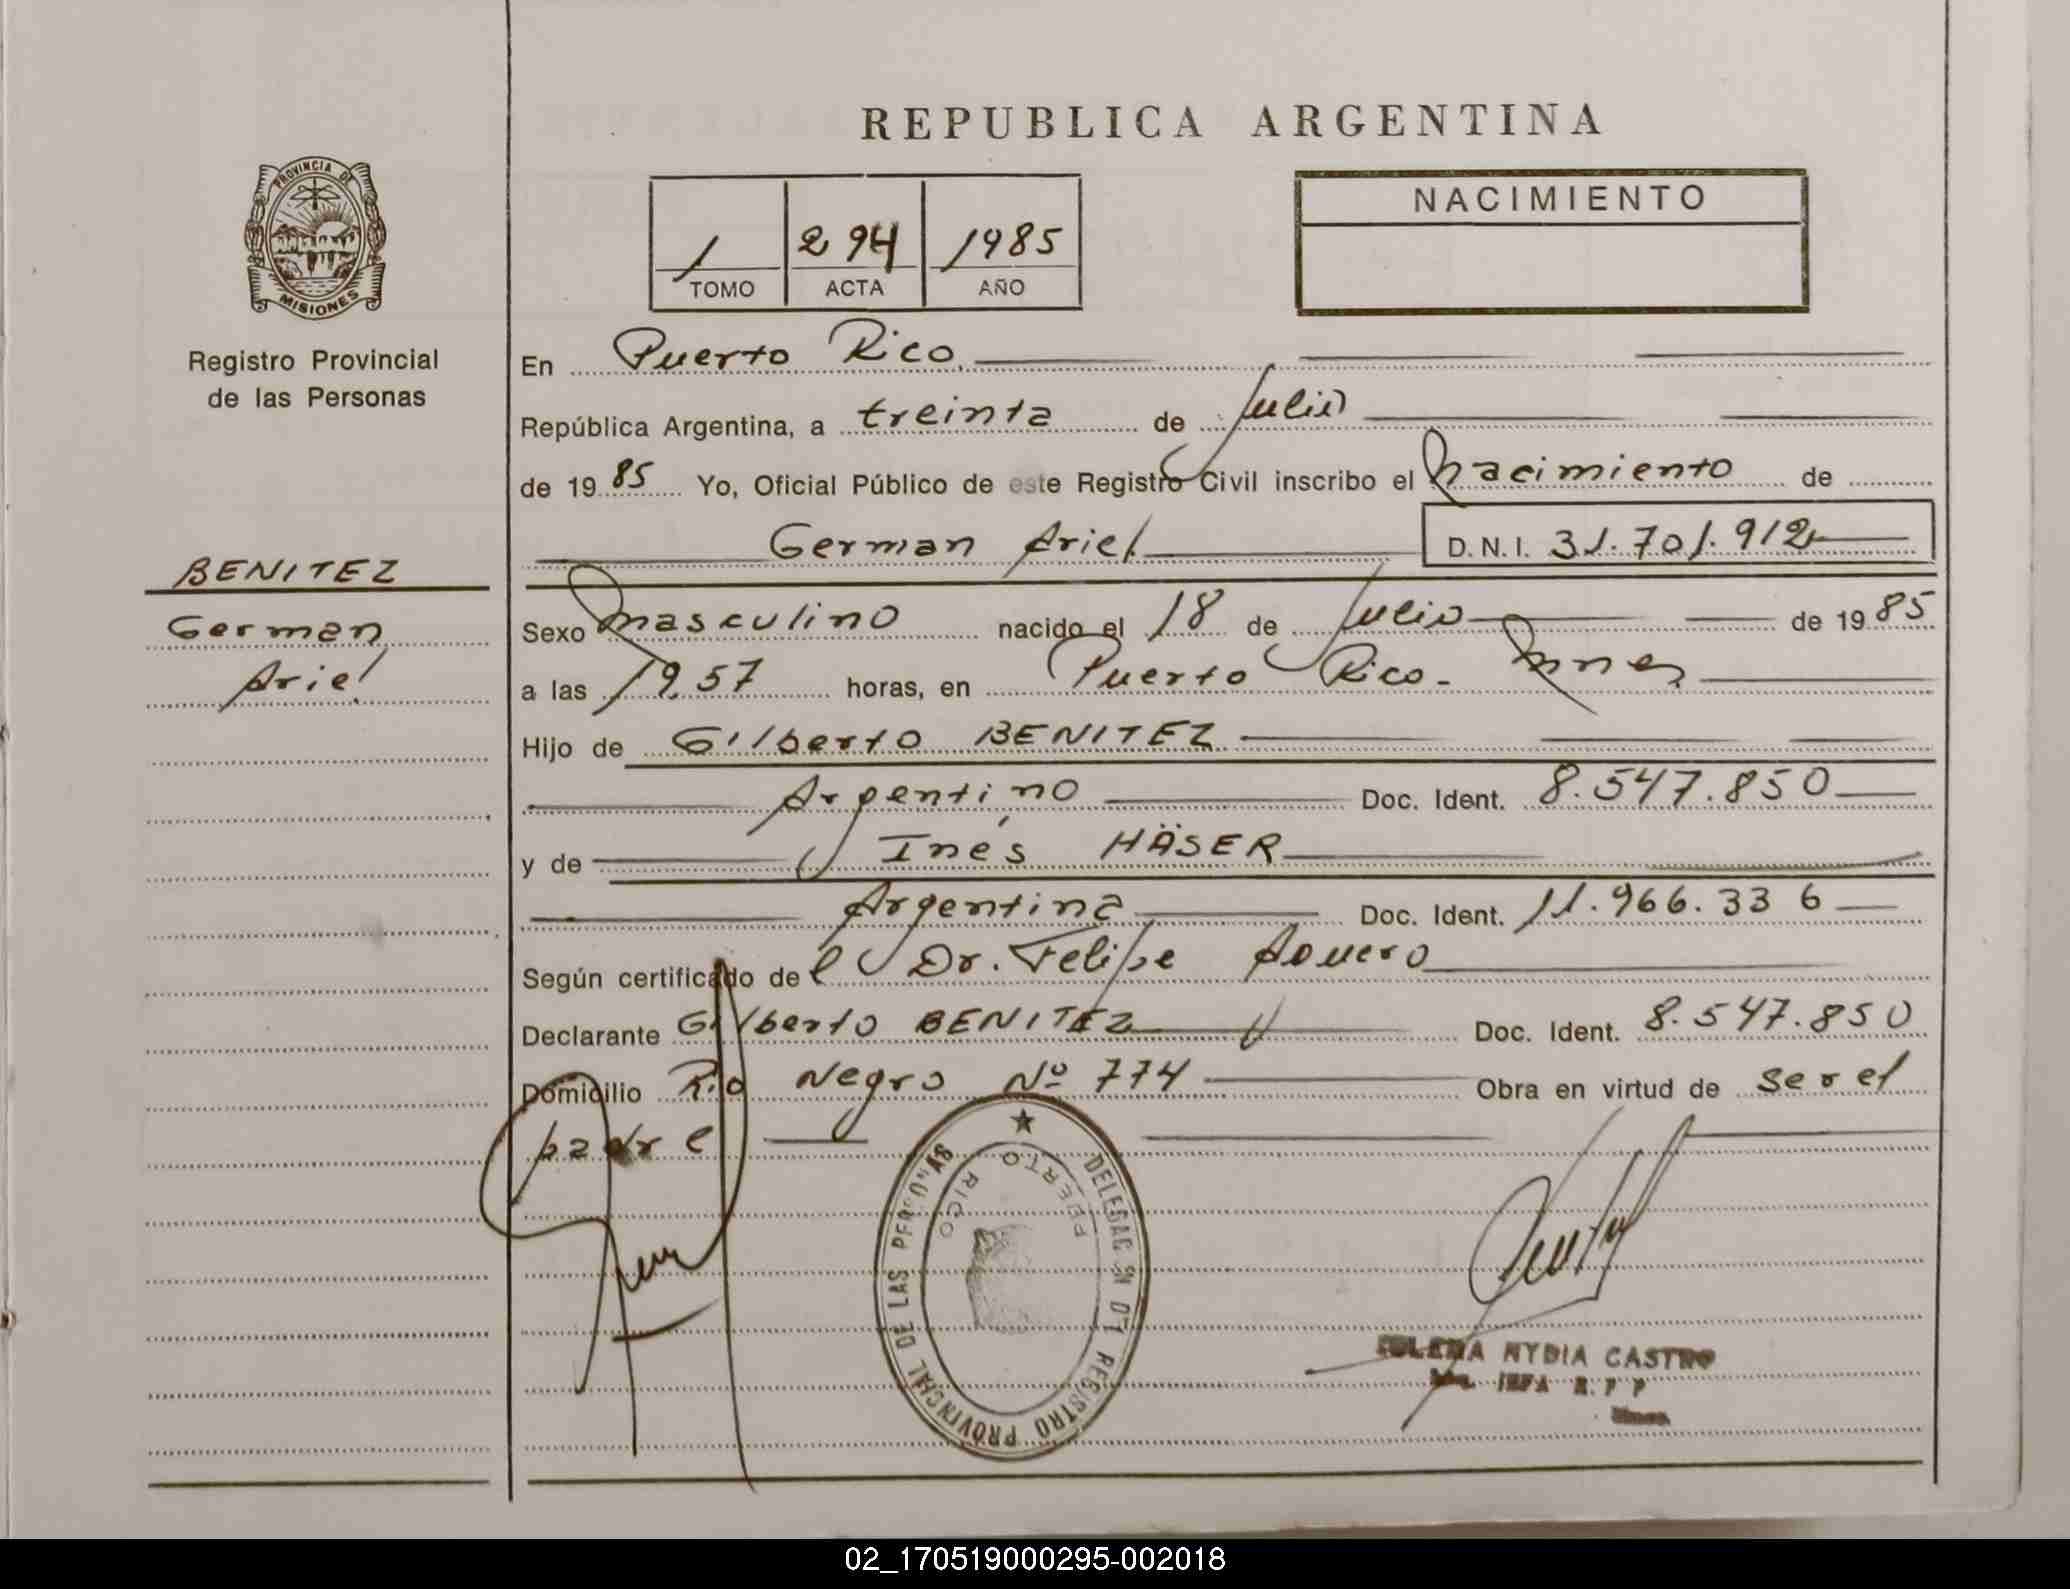 REPUBLICA ARGENTINA
PROVINCIA DE
MISIONES
Registro Provincial
de las Personas
1 294 1985
TOMO ACTA AÑO
NACIMIENTO
En Puerto Rico.
República Argentina, a treinta de Julio
de 1985 Yo, Oficial Público de este Registro Civil inscribo el Nacimiento de
German Ariel D.N.I. 31.701.912
BENITEZ
German
Ariel
Sexo Masculino nacido el 18 de Julio de 1985
a las 19,57 horas, en Puerto Rico - Mnes
Hijo de Gilberto BENITEZ
Argentino Doc. Ident. 8.547.850
y de Inés HÄSER
Argentina Doc. Ident. 11.966.336
Según certificado del Dr. Felipe
Declarante Gilberto BENITEZ Doc. Ident. 8.547.850
Domicilio Rio Negro Nº 774 Obra en virtud de ser el
padre
DELEGACION DEL REGISTRO PROVINCIAL DE LAS PERSONAS
PUERTO RICO
NYDIA CASTRO
R.P.P
Mnes.
02_170519000295-002018